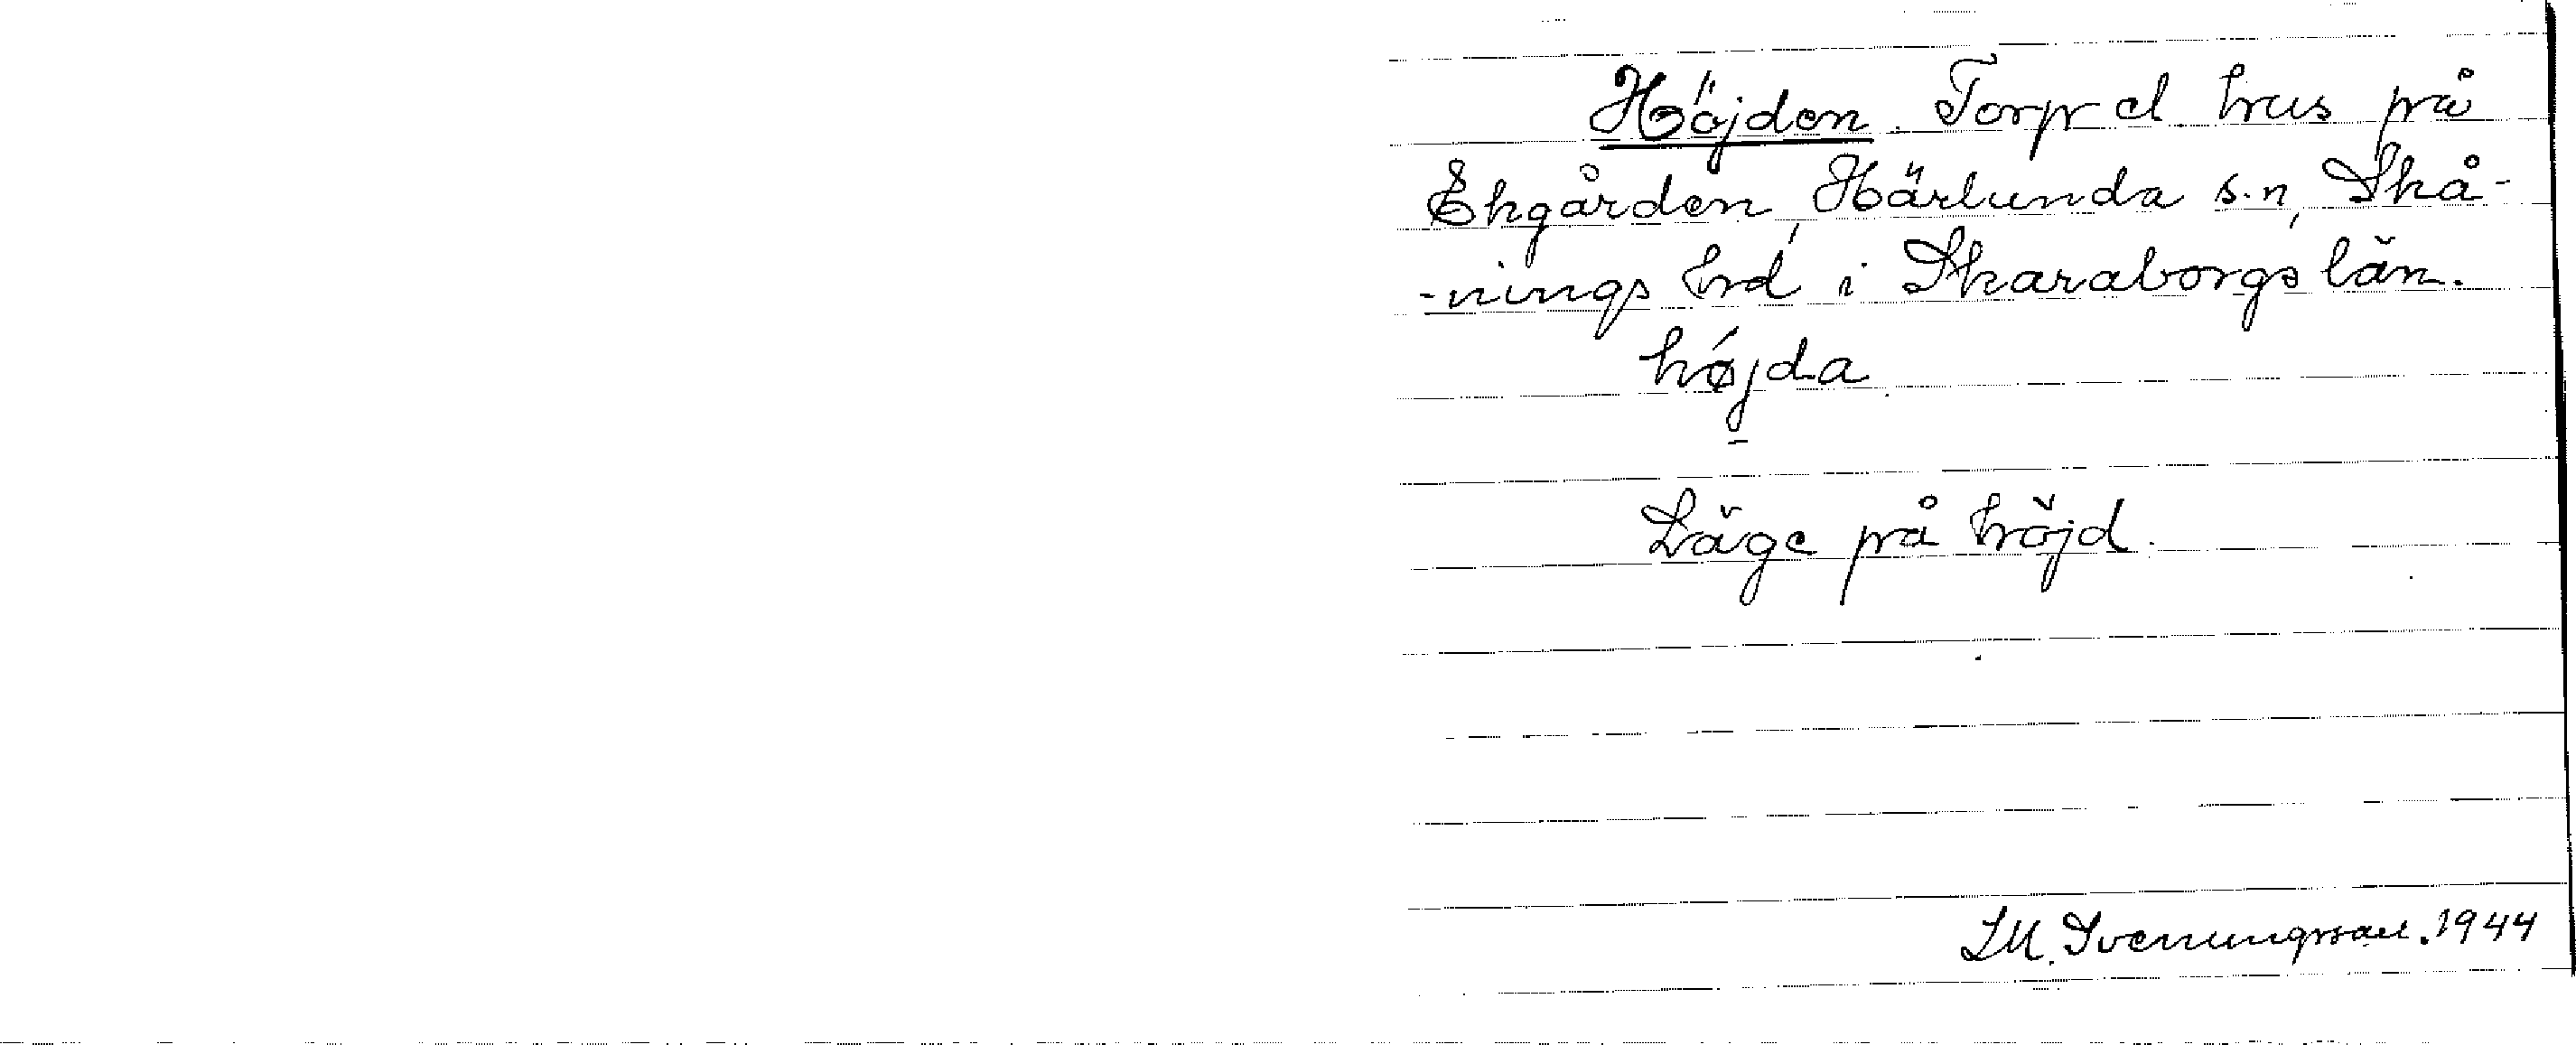 Höjden. Torp el. hus på
Ekgården, Härlunda s.n, Skå-
-nings hrd i Skaraborgs län.
hǿjda
Läge på höjd.
LM. Svenungsson. 1944